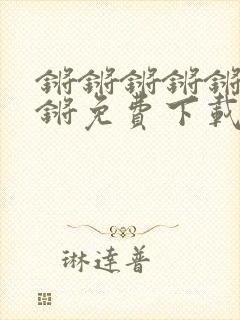 锵锵锵锵锵
锵免费下载
琳達普